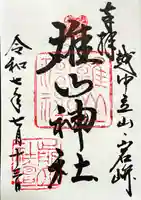 奉拝
越中立山・岩峅
雄山神社
令和七年七月十三日